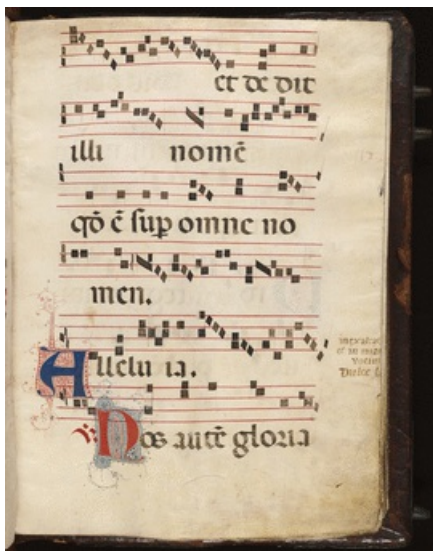 et de dit
illi nomē
qđ ē sup omne no
men.
Allelu ia.
℣. Nos autē gloria